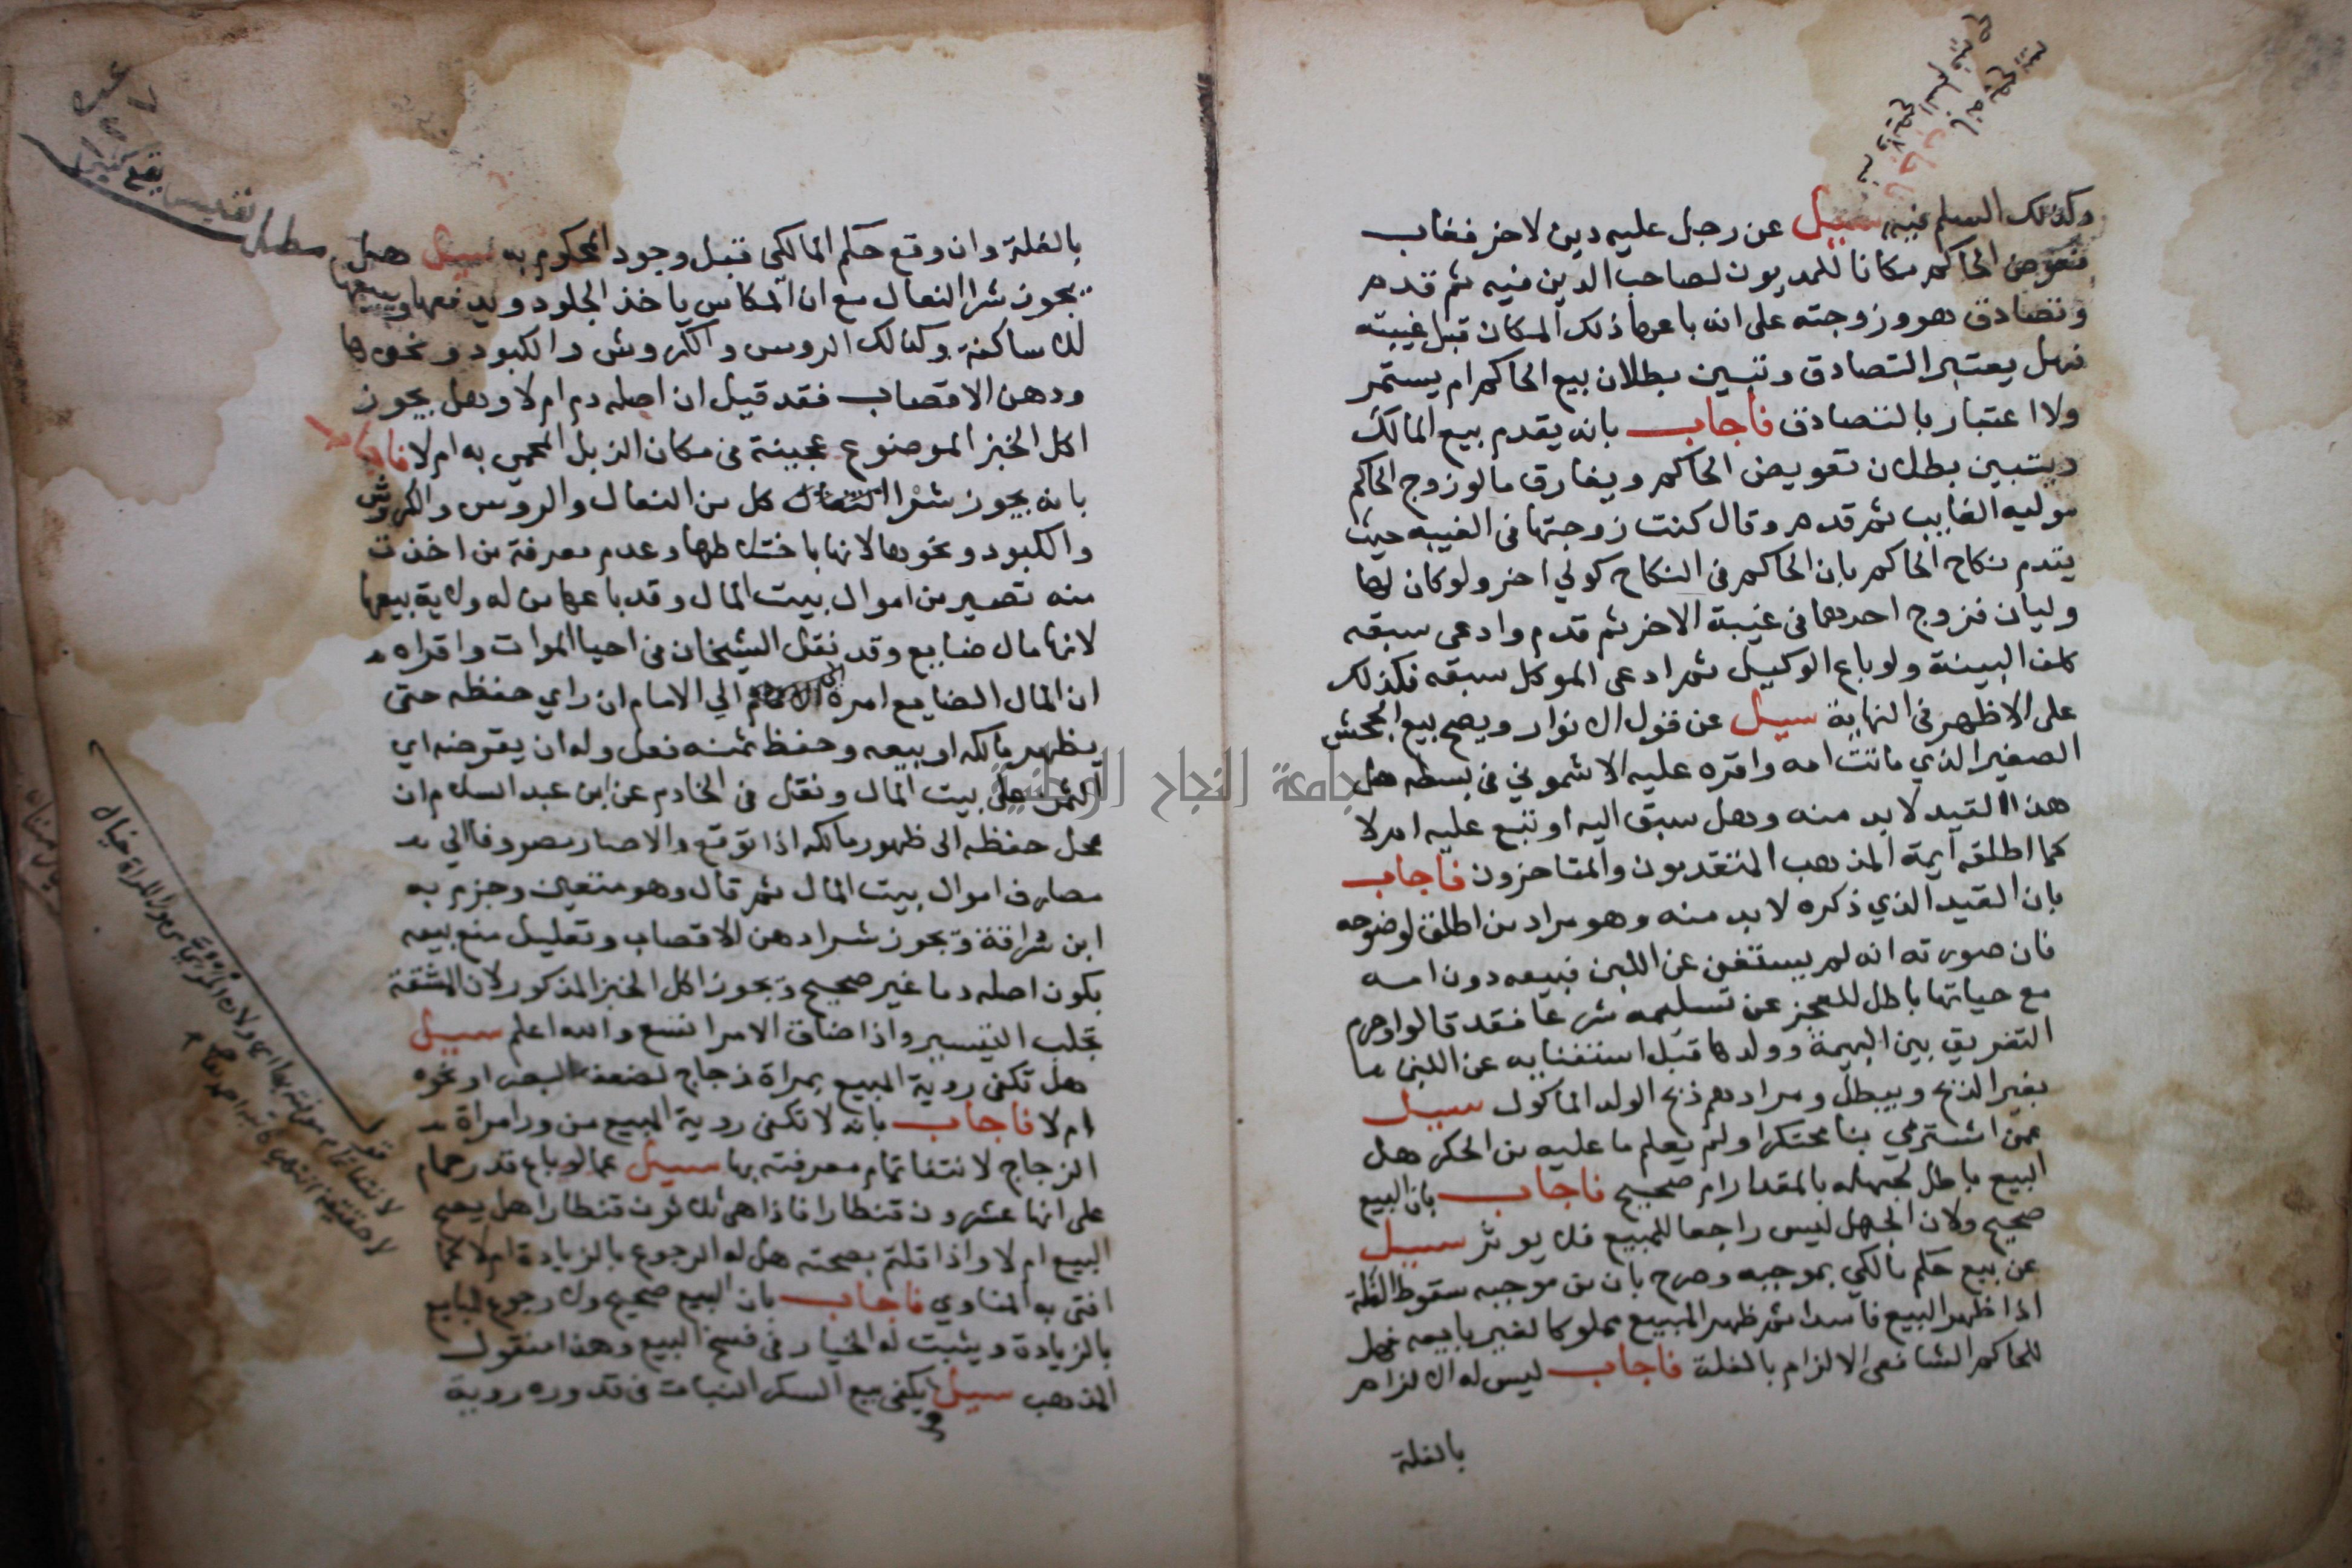 وكذلك السلم فيه سيل عن رجل عليه دين لاخر فغاب
فعوض الحاكم مكانا للمديون لصاحب الدين فيه ثم قدم
وتصادق هو وزوجته على انه باعها ذلك المكان قبل غيبته
فهل يعتبر التصادق وتبين بطلان بيع الحاكم ام يستمر
ولا اعتبار بالتصادق فاجاب بانه يقدم بيع المالك
ويتبين بطلان تعويض الحاكم ويفارق ما لو زوج الحاكم
موليه الغايب ثم قدم وقال كنت زوجتها في الغيبه حيث
يقدم نكاح الحاكم بان الحاكم في النكاح كولي اخر ولو كان لها
وليان فزوج احدهما في غيبة الاخر ثم قدم وادعى سبقه
كلف البينة ولو باع الوكيل ثم ادعى الموكل سبقه فكذلك
على الاظهر في النهاية سيل عن قول الانوار ويصح بيع الجحش
الصغير الذي ماتت امه واقره عليه الاشموني في بسطه هل
هذا القيد لابد منه وهل سبق اليه او تبع عليه ام لا
كما اطلقه ايمة المذهب المتقدمون والمتاخرون فاجاب
بان القيد الذي ذكره لابد منه وهو مراد من اطلق لوضوحه
فان صورته انه لم يستغن عن اللبن فبيعه دون امه
مع حياتها باطل للعجز عن تسليمه شرعا فقد قالوا وحرم
التفريق بين البهيمة وولدها قبل استغنايه عن اللبن ما
بغير الذبح ويبطل ومرادهم ذبح الولد الماكول سيل
عمن اشترى بنا محتكرا ولم يعلم ما عليه من الحكر هل
البيع باطل لجهله بالمقدار ام صحيح فاجاب بان البيع
صحيح ولان الجهل ليس راجعا للمبيع فلا يوثر سيل
عن بيع حكم مالكي بموجبه وصرح بان من موجبه سقوط الغلة
اذا ظهر البيع فاسدا ثم ظهر المبيع مملوكا لغير بايعه فهل
للحاكم الشافعى الالزام بالغلة فاجاب ليس له الالزام
بالغلة
بالغلة وان وقع حكم المالكي قبل وجود المحكوم به سيل هل
يجوز شرا النعال مع ان المكاس ياخذ الجلود ويدفعها ويبيعها
للاساكفة وكذلك الروس والكروش والكبود ونحوها
ودهن الاقصاب فقد قيل ان اصله دم ام لا وهل يجوز
اكل الخبز الموضوع عجينة في مكان الزبل المحمى به ام لا فاجاب
بانه يجوز شرا كل من النعال والروس والكروش
والكبود ونحوها لانها باختلاطها وعدم معرفة من اخذت
منه تصير من اموال بيت المال وقد باعها من له ولاية بيعها
لانها مال ضايع وقد نقل الشيخان في احيا الموات واقراه
ان المال الضايع امره الي الامام ان راي حفظه حتى
يظهر مالكه او بيعه وحفظ ثمنه فعل وله ان يقرضه اي
الثمن على بيت المال ونقل في الخادم عن ابن عبد السلام ان
محل حفظه الى ظهور مالكه اذا توقع والا صار مصروفا الي
مصارف اموال بيت المال ثم قال وهو متعين وجزم به
ابن سراقة ويجوز شرا دهن الاقصاب وتعليل منع بيعه
بكون اصله دما غير صحيح ويجوز اكل الخبز المذكور لان المشقة
تجلب التيسير واذا ضاق الامر اتسع والله اعلم سيل
هل تكفي روية المبيع بمراة زجاج لضعف البصر او نحوه
ام لا فاجاب بانه لا تكفي روية المبيع من ورا مراة
الزجاج لانتفا تمام معرفته بها سيل عما لو باع قدر حمام
على انها عشرون قنطارا فاذا هي ثلاثون قنطارا هل يصح
البيع ام لا واذا قلتم بصحته هل له الرجوع بالزيادة ام لا كما
افتى به المناوي فاجاب بان البيع صحيح ولا رجوع للبايع
بالزيادة ويثبت له الخيار في فسخ البيع وهذا منقول
المذهب سيل هل يكفي بيع السكر النبات في قدوره روية
جامعة النجاح الوطنية